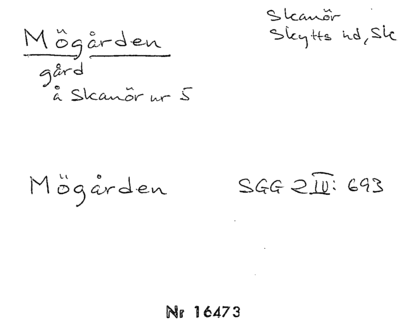 Mögården
gård
å Skanör nr 5
Skanör
Skytts hd, Sk
Mögården
SGG 2 IV: 693
Nr 16473